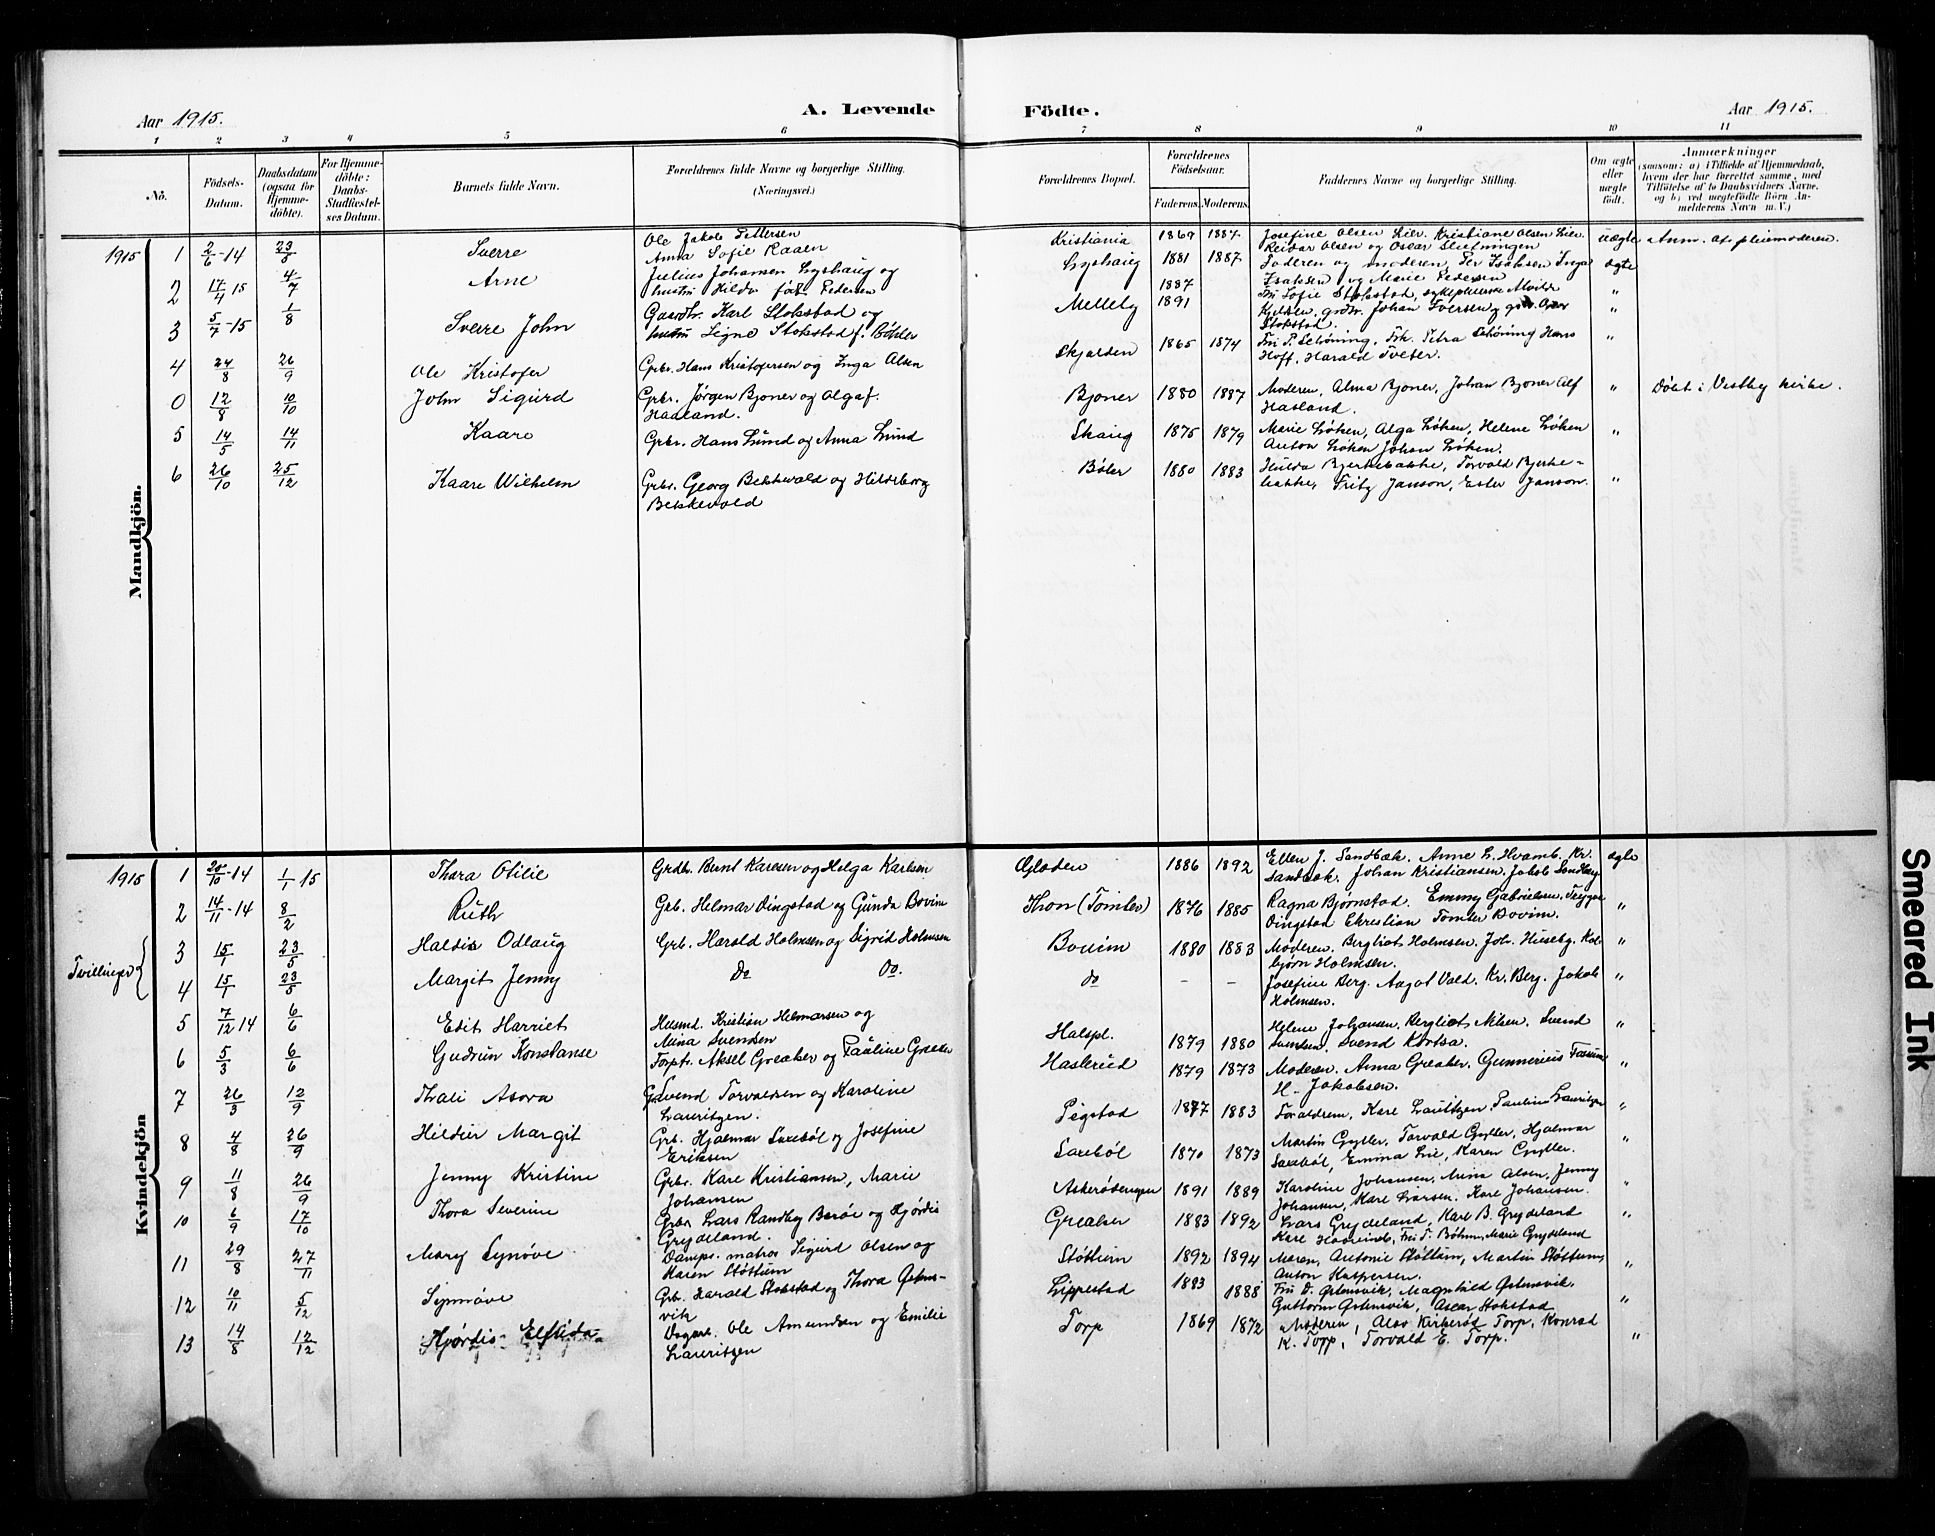 Aar 1915.
A. Levende
Födte.
Aar 1915.
1 2 3 4 5 6 7 8 9 10 11
No.
Födsels-
Datum.
Daabsdatum
(ogsaa for
Hjemme-
döbte).
For Hjemme-
döbte:
Daabs-
Stadfæstel-
ses Datum.
Barnets fulde Navn.
Forældrenes fulde Navne og borgerlige Stilling.
(Næringsvei.)
Forældrenes Bopæl.
Forældrenes
Födselsaar.
Faderens. Moderens.
Faddernes Navne og borgerlige Stilling.
Om ægte
eller
uægte
födt.
Anmærkninger
(saasom: a) i Tilfælde af Hjemmedaab,
hvem der har forrettet samme, med
Tilföielse af to Daabsvidners Navne,
og b) ved uægtefödte Börn An-
melderens Navn m. V.)
Mandkjön.
1915 1 2/6-14 23/8 Sverre
Ole Jakob Pettersen
Anna Sofie Raaen
Kristiania 1869 1887
Josefine Olsen Lier. Kristiane Olsen Lier.
Reidar Olsen og Oscar
uægte Anm. af pleiemoderen.
2 17/4 15 4/7 Arne
Julius Johansen Lyshaug og
hustru Hilda født Pedersen
Lyshaug 1881 1887
Faderen og moderen, Per Isaksen Inga
Isaksen og Marie Pedersen
ægte
3 5/7-15 1/8 Sverre John
Gaardbr. Karl Stokstad og
hustru Signe Stokstad f. Bøhler
Melleby 1887 1891
Fru Sofie Stokstad, sykepleierske Alvilde
Kjelsen, grdbr. Johan Iversen, grdbr. Oscar
Stokstad.
"
4 24/8 26/9 Ole Kristofer
Grbr. Hans Kristofersen og Inga Olsen
Skjolden 1865 1874
Fru P. Schöning, Frk. Petra Schöning Hans
Hoff, Harald Tveter.
"
0 12/8 10/10 John Sigurd
Grbr. Jørgen Bjoner og Olga f.
Haaland.
Bjoner 1880 1887
Moderen, Alma Bjoner, Johan Bjoner Alf
Hasland.
" Døbt i Vestby kirke.
5 14/5 14/11 Kaare
Grbr. Hans Lund og Anna Lund
Skaug 1875 1879
Marie Løken, Olga Løken, Helene Løken
Anton Løken Johan Løken.
"
6 26/10 25/12 Kaare Wilhelm
Grbr. Georg Bekkevold og Hildeborg
Bekkevold
Bøler 1880 1883
Hulda Bjerkebakke, Torvald Bjerke-
bakke, Fritz Janson, Ester Janson.
"
Kvindekjön
1915 1 20/10-14 1/1 15 Thora Otilie
Grdbr. Bernt Karlsen og Helga Karlsen
Gladen 1886 1892
Ellen J. Sandbæk. Anne L. Hvamb. Kr.
Sandbæk. Johan Kristiansen. Jakob Sandbæk
ægte
2 14/11-14 8/2 Ruth
Grb. Helmar Dingstad og Gunda Bovim
Thon (Tomter) 1876 1885
Ragna Bjørnstad. Emmy Gabrielsen. Trygve
Dingstad Christian Tomter Bovim.
"
Tvillinger
3 15/1 23/5 Haldis Odlaug
Grb. Harald Holmsen og Sigrid Holmsen
Bovim 1880 1883
Moderen. Bergliot Holmsen. Joh. Huseby. Kol-
bjørn Holmsen.
"
4 15/1 23/5 Margit Jenny
Do Do.
do - -
Josefine Berg. Aagot Vold. Kr. Berg. Jakob
Holmsen.
"
5 7/12 14 6/6 Edit Harriet
Husmd. Kristian Helmersen og
Mina Svendsen
Halspl. 1879 1880
Helene Johansen. Bergliot Nilsen. Svend
Svendsen. Svend Kortsa.
"
6 5/3 6/6 Gudrun Konstanse
Forptr. Aksel Greaker og Pauline Greaker
Haslerud 1879 1873
Moderen. Anna Greaker. Gunnerius Fossum
H. Jakobsen.
"
7 26/3 12/9 Thali Asora
Svend Torvaldsen og Karoline
Lauritzen.
Pigstad 1877 1883
Forældrene, Karl Lauritzen. Pauline Lauritzen
"
8 4/8 26/9 Hildur Margit
Grb. Hjalmar Saxebøl og Josefine
Eriksen
Saxebøl 1870 1873
Martin Gyller. Torvald Gyller, Hjalmar
Saxebøl, Emma Lie, Karen Gyller.
"
9 11/8 26/9 Jenny Kristine
Grbr. Karl Kristiansen, Marie
Johansen
Askerødengen 1891 1889
Karoline Johansen, Mina Olsen, Jenny
Johansen, Karl Larsen. Karl Johansen.
"
10 6/9 17/10 Thora Severine
Grbr. Lars Randby Berøe og Hjørdis
Grydeland.
Greaker 1883 1892
Lars Grydeland, Karl B. Grydeland
Karl Haavind, Fru T. Bøhm, Marie Grydeland
"
11 29/8 27/11 Mary Synøve
Damps. matros Sigurd Olsen og
Maren Støttum
Støttum 1892 1894
Maren, Antonie Støttum, Martin Støttum,
Anton Kaspersen.
"
12 10/11 5/12 Synnøve
Grb. Harald Stokstad og Thora Østens-
vik
Lippestad 1883 1888
Fru D. Østensvik, Magnhild Østensvik.
Guttorm Østensvik, Oscar Stokstad
"
13 14/8 12/12 Hjørdis Elfrida
Dagarb. Ole Amundsen og Emilie
Lauritzen
Torp 1869 1872
Moderen, Olav Kirkerød Torp, Konrad
K. Torp, Torvald E. Torp.
"
Smeared Ink